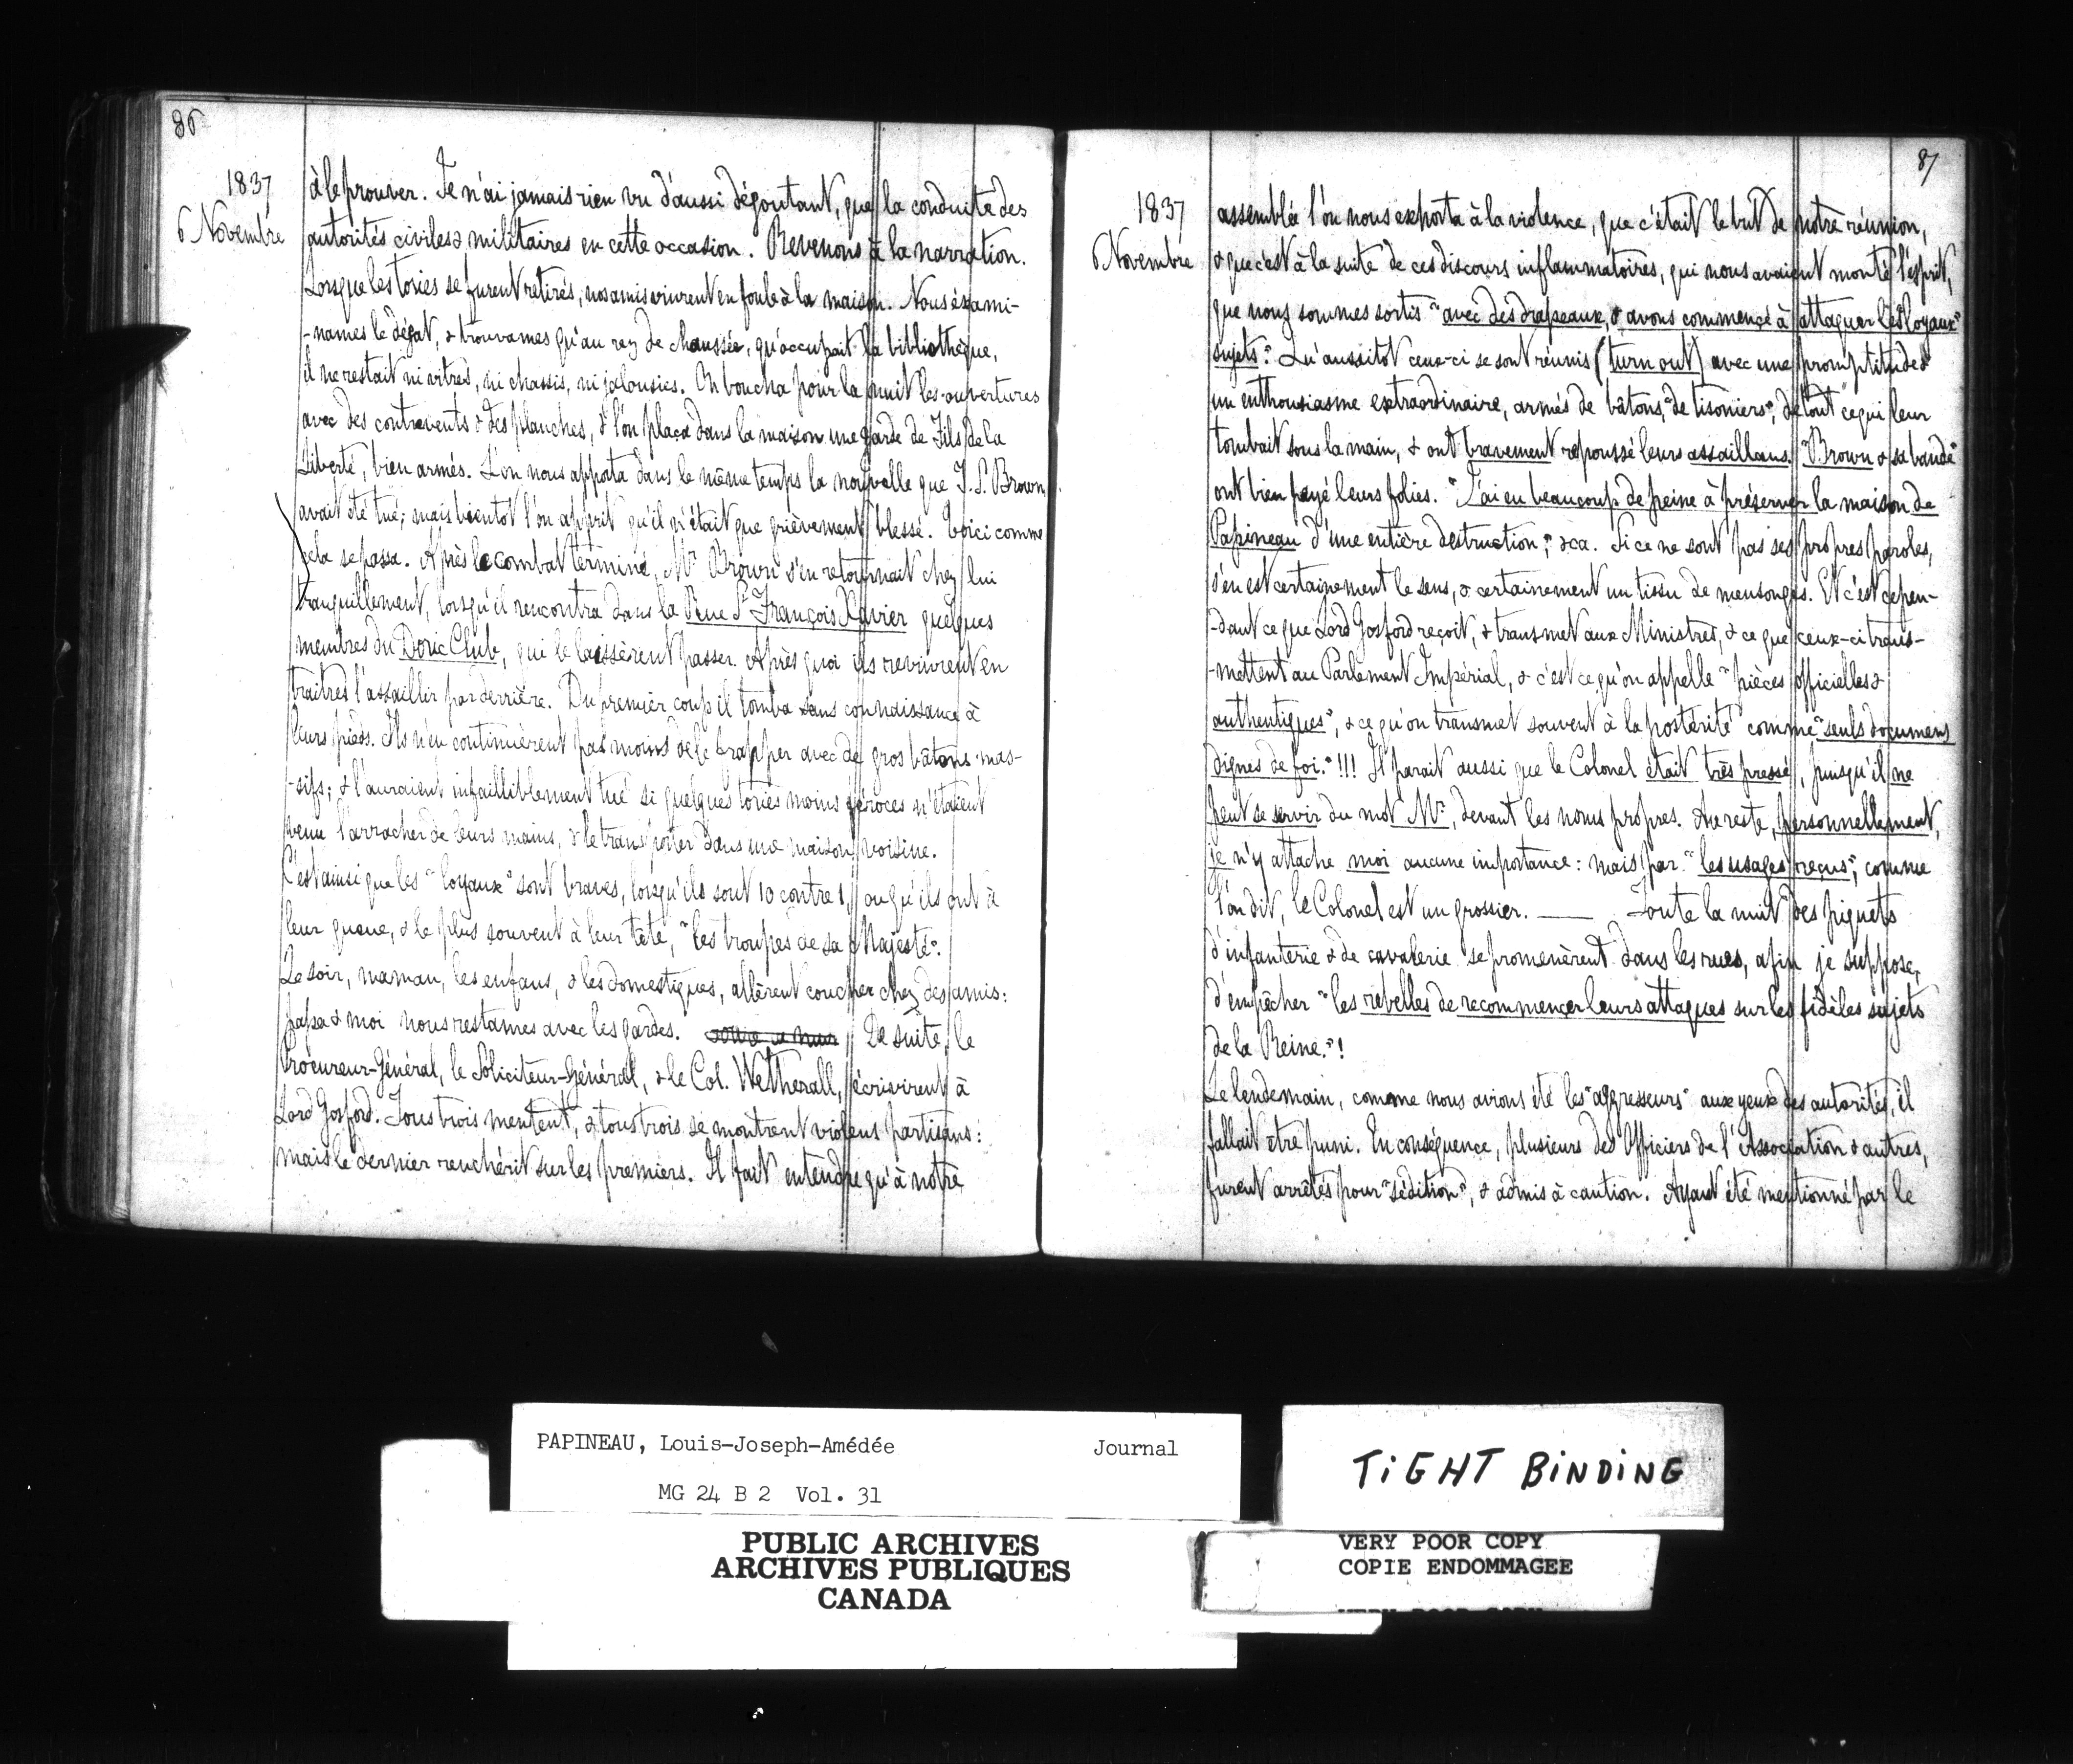 86
1837
6 Novembre
à le prouver. Je n'ai jamais rien vu d'aussi dégoutant, que la conduite des
autorités civiles & militaires en cette occasion. Revenons à la narration.
Lorsque les tories se furent retirés, nos amis vinrent en foule à la maison. Nous éxami-
-names le dégat, & trouvames qu'au rez de chaussée, qu'occupait la bibliothèque,
il ne restait ni vitres, ni chassis, ni jalousies. On boucha pour la nuit les ouvertures
avec des contrevents & des planches, & l'on plaça dans la maison une garde de Fils de la
Liberté, bien armés. L'on nous apporta dans le même temps la nouvelle que J. S. Brown,
avait été tué; mais bientot l'on apprit qu'il n'était que grièvement blessé. Voici comme
cela se passa. Après le combat terminé, Mr. Brown s'en retournait chez lui
tranquillement, lorsqu'il rencontra dans la Rue St. François Xavier quelques
membres du Doric Club, qui le laissèrent passer. Après quoi ils revinrent en
traitres l'assaillir par derrière. Du premier coup il tomba sans connaissance à
leurs pieds. Ils n'en continuèrent pas moins de le frapper avec de gros bâtons mas-
-sifs; & l'auraient infailliblement tué si quelques tories moins féroces n'étaient
venu l'arracher de leurs mains, & le transporter dans une maison voisine.
C'est ainsi que les "loyaux" sont braves, lorsqu'ils sont 10 contre 1, ou qu'ils ont à
leur queue, & le plus souvent à leur tête, "les troupes de sa Majesté".
Le soir, maman, les enfans, & les domestiques, allèrent coucher chez des amis:
papa & moi nous restames avec les gardes. De suite, le
Procureur-Général, le Soliciteur-Général, & le Col. Wetherall, écrivirent à
Lord Gosford. Tous trois mentent, & tous trois se montrent violens partisans:
mais le dernier renchérit sur les premiers. Il fait entendre qu'à notre
87
1837
6 Novembre
assemblée l'on nous exhorta à la violence, que c'était le but de notre réunion,
& que c'est à la suite de ces discours inflammatoires, qui nous avaient monté l'esprit,
que nous sommes sortis "avec des drapeaux, & avons commencé à attaquer les loyaux
sujets". Qu'aussitot ceux-ci se sont réunis (turn out) avec une promptitude &
un enthousiasme extraordinaire, armés de bâtons, "de tisoniers", de tout ce qui leur
tombait sous la main, & ont bravement repoussé leurs assaillans. "Brown & sa bande"
ont bien payé leurs folies. "J'ai eu beaucoup de peine à préserver la maison de
Papineau d'une entière destruction", &ca. Si ce ne sont pas ses propres paroles,
s'en est certainement le sens, & certainement un tissu de mensonges. Et c'est cepen-
-dant ce que Lord Gosford reçoit, & transmet aux Ministres, & ce que ceux-ci trans-
-mettent au Parlement Impérial, & c'est ce qu'on appelle "pièces officielles &
authentiques", & ce qu'on transmet souvent à la postérité comme "seuls documens
dignes de foi."!!! Il parait aussi que le Colonel était très pressé, puisqu'il ne
peut se servir du mot Mr., devant les noms propres. Au reste, personnellement,
je n'y attache moi aucune importance: mais par "les usages reçus", comme
l'on dit, le Colonel est un grossier. —— Toute la nuit des piquets
d'infanterie & de cavalerie se promenèrent dans les rues, afin je suppose,
d'empêcher "les rebelles de recommencer leurs attaques sur les fidèles sujets
de la Reine."!
Le lendemain, comme nous avions été les "aggresseurs" aux yeux des autorités, il
fallait être puni. En conséquence, plusieurs des Officiers de l'Association & autres,
furent arrêtés pour "sédition", & admis à caution. Ayant été mentionné par le
PAPINEAU, Louis-Joseph-Amédée Journal
MG 24 B 2 Vol. 31
PUBLIC ARCHIVES
ARCHIVES PUBLIQUES
CANADA
TIGHT BINDING
VERY POOR COPY
COPIE ENDOMMAGEE